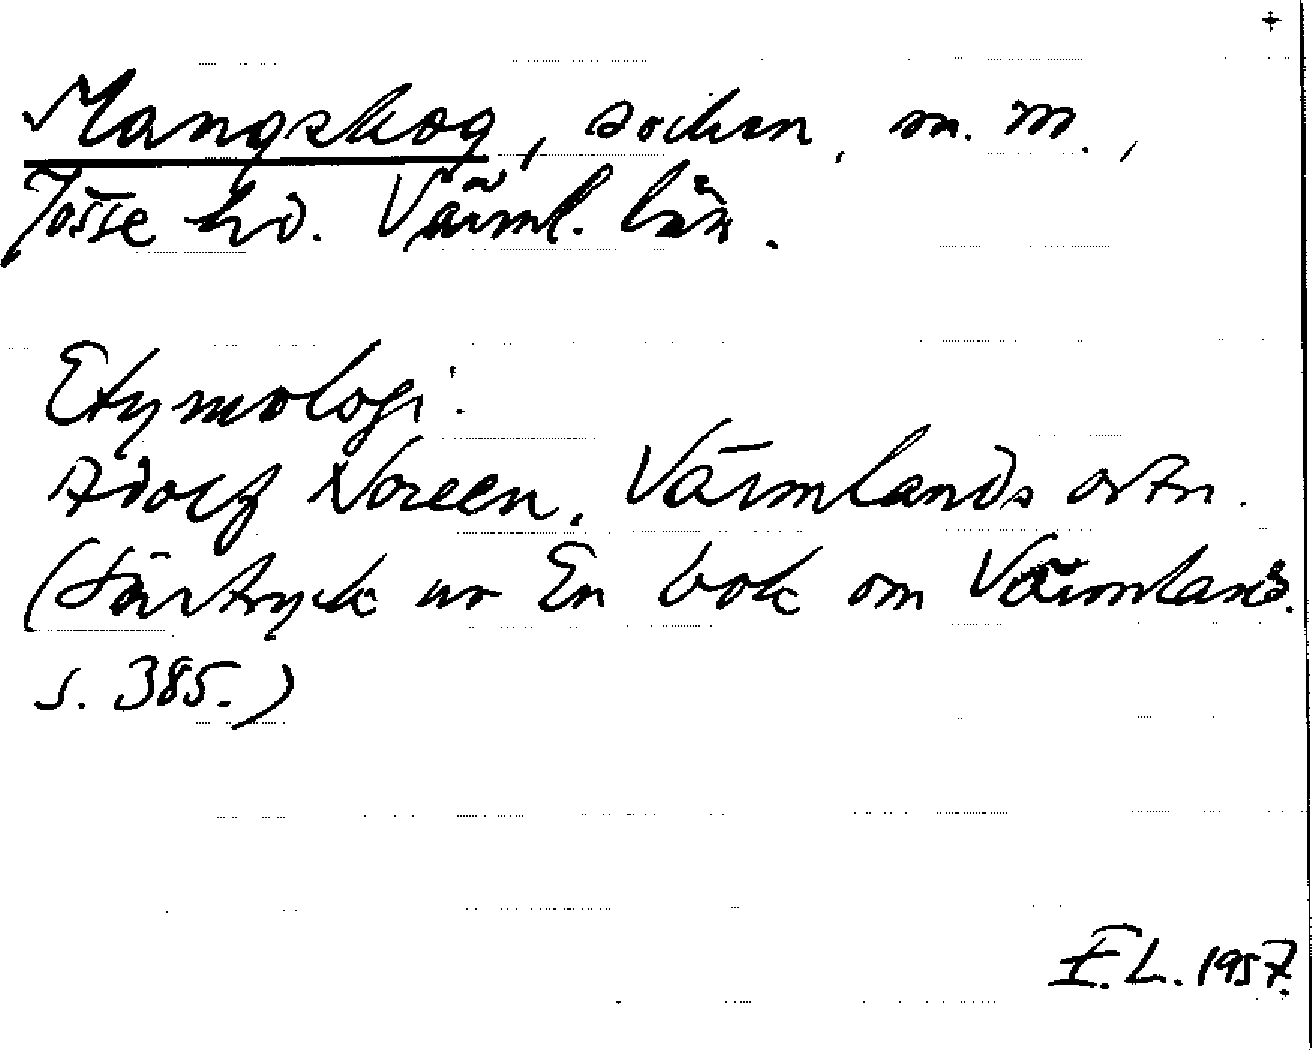 Mangskog, socken, m. m.,
Jösse hd. Värml. län.
Etymologi:
Adolf Noreen, Värmlands ortn.
(Särtryck ur En bok om Värmland.
s. 385.)
F.L. 1957.